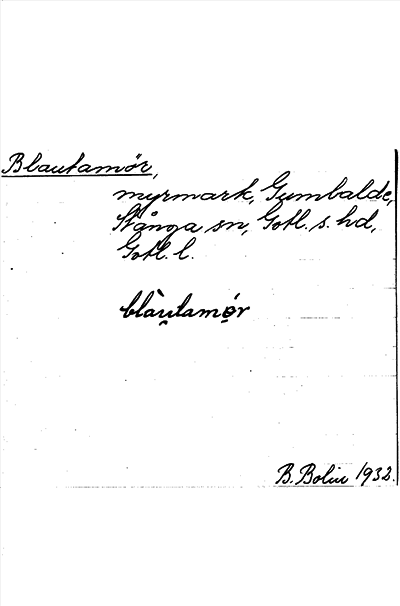 Blautamör,
myrmark, Gumbalde,
Stånga sn, Gotl. s. hd,
Gotl. l.
blàu̯tamǿ̣r
B. Bolin 1932.